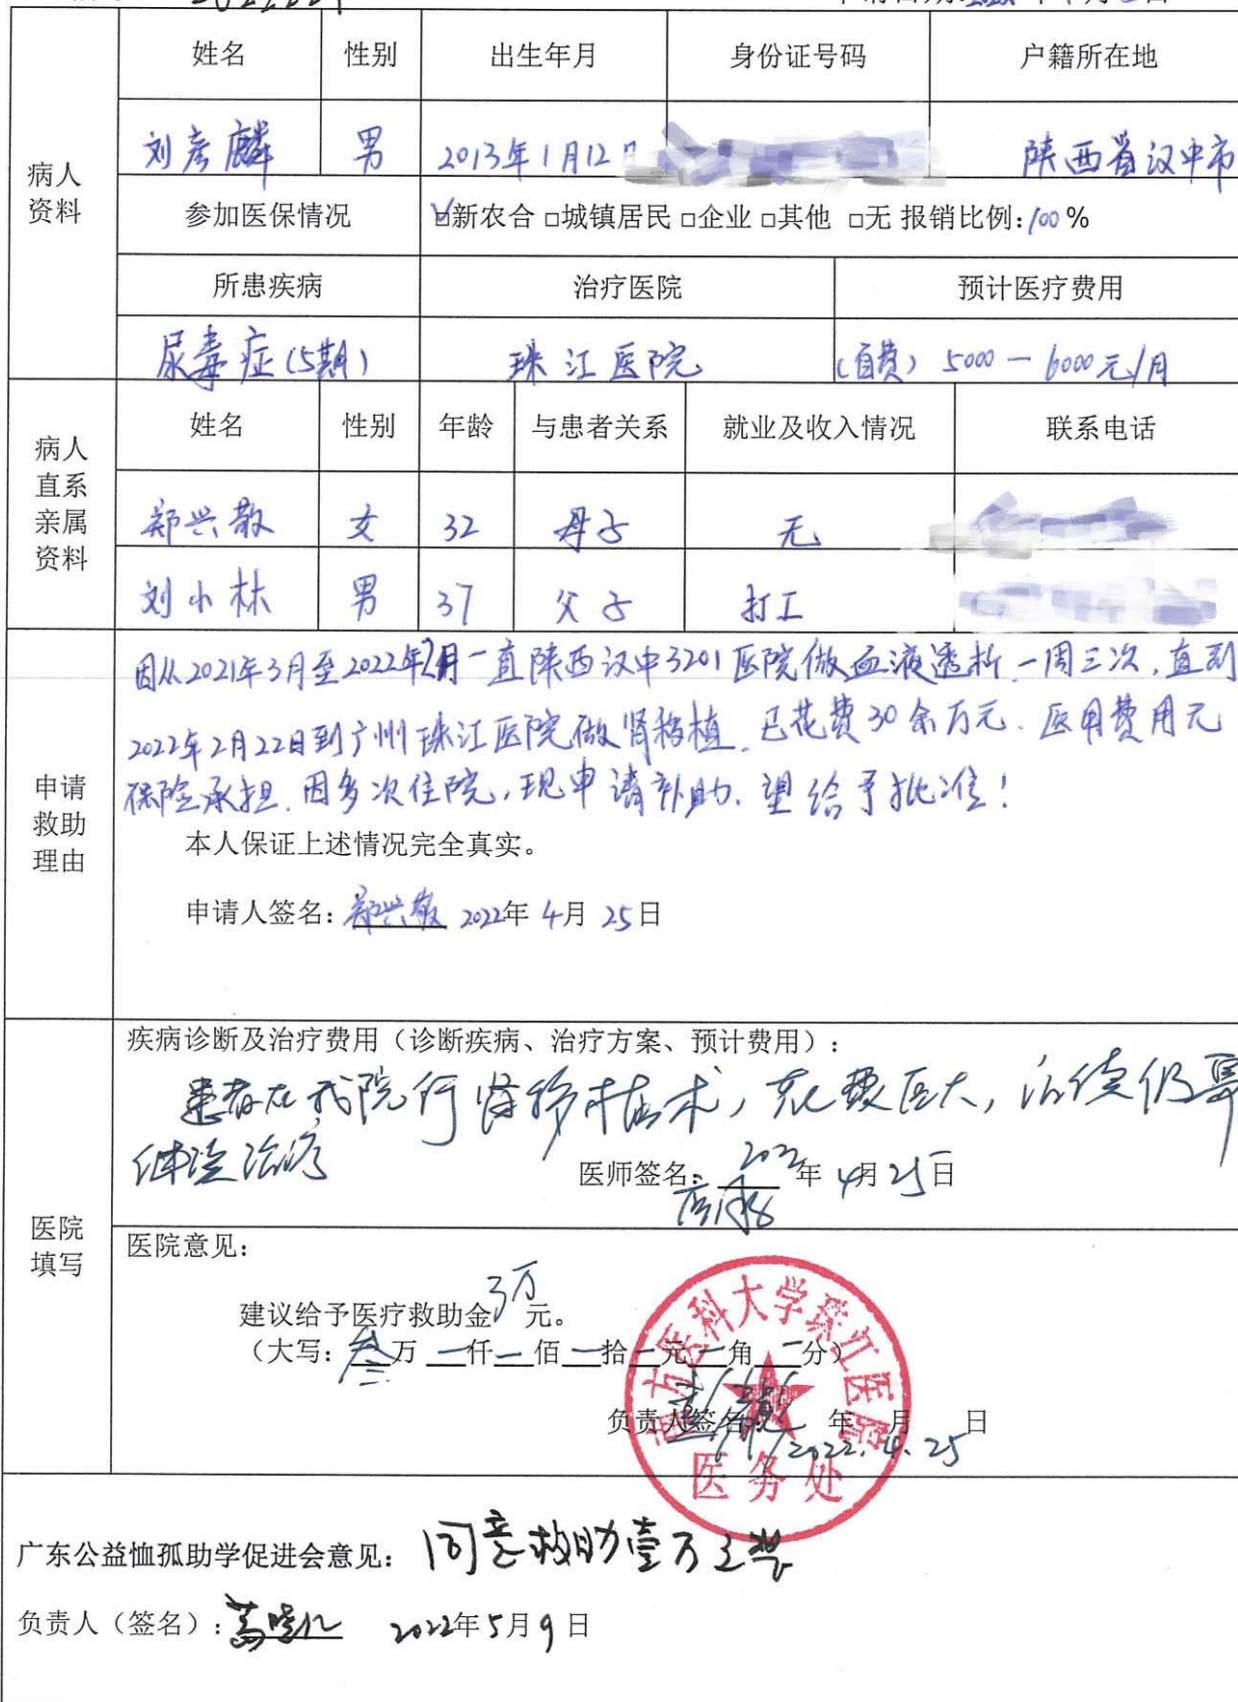 姓名 性别 出生年月 身份证号码 户籍所在地
病人资料
刘彦麟 男 2013年1月12日 陕西省汉中市
参加医保情况 ☑新农合 □城镇居民 □企业 □其他 □无 报销比例:100%
所患疾病 治疗医院 预计医疗费用
尿毒症(5期) 珠江医院 (自费) 5000-6000元/月
病人直系亲属资料
姓名 性别 年龄 与患者关系 就业及收入情况 联系电话
郑兴敬 女 32 母子 无
刘小林 男 37 父子 打工
申请救助理由
因从2021年3月至2022年2月一直陕西汉中3201医院做血液透析一周三次,直到
2022年2月22日到广州珠江医院做肾移植.已花费30余万元.医用费用无
保险承担.因多次住院,现申请补助.望给予批准!
本人保证上述情况完全真实。
申请人签名:郑兴敬 2022年 4月 25日
医院填写
疾病诊断及治疗费用(诊断疾病、治疗方案、预计费用):
患者在我院行肾移植术,花费巨大,后续仍需
继续治疗
医师签名: 2022年 4月25日
医院意见:
建议给予医疗救助金3万元。
(大写:叁万一仟一佰一拾一元一角一分)
负责人签名: 年 月 日
2022.4.25
南方医科大学珠江医院
医务处
广东公益恤孤助学促进会意见:同意救助壹万元整
负责人(签名): 2022年5月9日